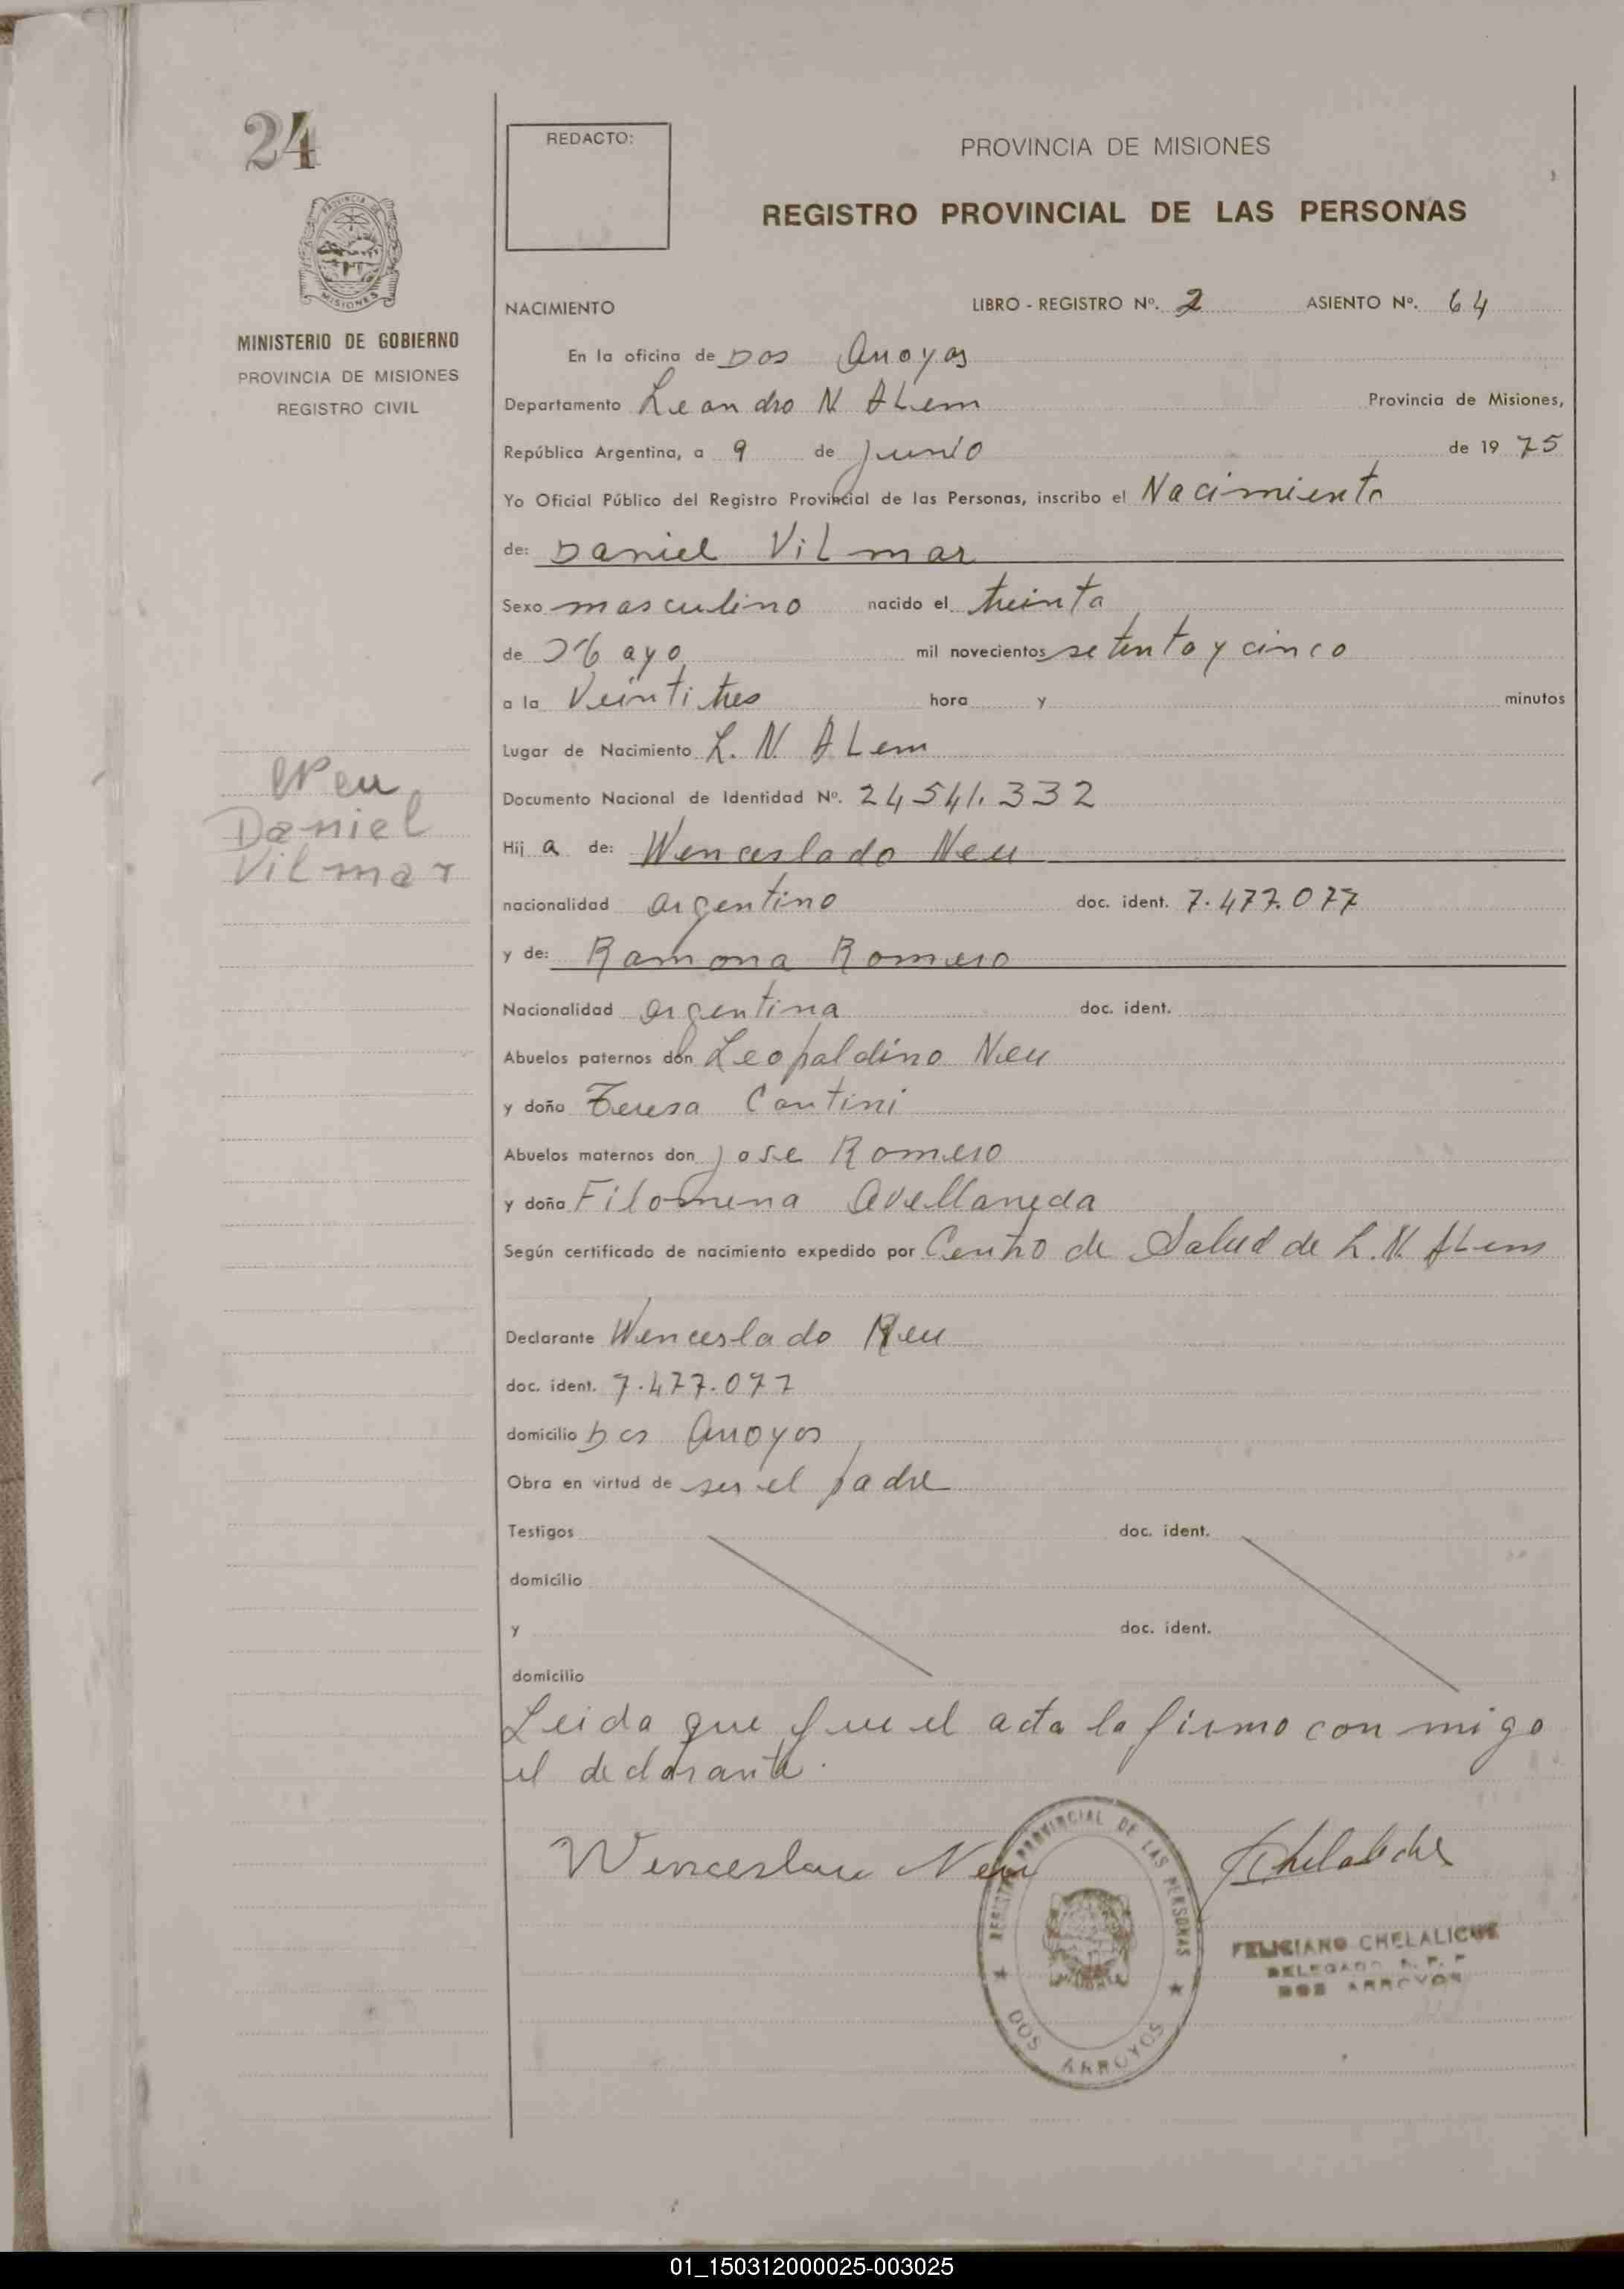 24
PROVINCIA DE
MISIONES
MINISTERIO DE GOBIERNO
PROVINCIA DE MISIONES
REGISTRO CIVIL
Neu
Daniel
Vilmar
REDACTO:
PROVINCIA DE MISIONES
REGISTRO PROVINCIAL DE LAS PERSONAS
NACIMIENTO LIBRO - REGISTRO Nº. 2 ASIENTO Nº. 64
En la oficina de Dos Arroyos
Departamento Leandro N ALem Provincia de Misiones,
República Argentina, a 9 de junio de 19 75
Yo Oficial Público del Registro Provincial de las Personas, inscribo el Nacimiento
de: Daniel Vilmar
Sexo masculino nacido el treinta
de Mayo mil novecientos setenta y cinco
a la Veintitres hora y minutos
Lugar de Nacimiento L. N. ALem
Documento Nacional de Identidad Nº. 24541.332
Hij a de: Wenceslado Neu
nacionalidad argentino doc. ident. 7.477.077
y de: Ramona Romero
Nacionalidad argentina doc. ident.
Abuelos paternos don Leopaldino Neu
y doña Teresa Contini
Abuelos maternos don jose Romero
y doña Filomena Avellaneda
Según certificado de nacimiento expedido por Centro de Salud de L. N. ALem
Declarante Wenceslado Neu
doc. ident. 7.477.077
domicilio Dos Arroyos
Obra en virtud de ser el padre
Testigos doc. ident.
domicilio
y doc. ident.
domicilio
Leida que fue el acta la firmo con migo
el declarante.
Wenceslau Neu
REGISTRO PROVINCIAL DE LAS PERSONAS
DOS ARROYOS
FChelaliche
FELICIANO CHELALICHE
DELEGADO R. P. P
DOS ARROYOS
01_150312000025-003025